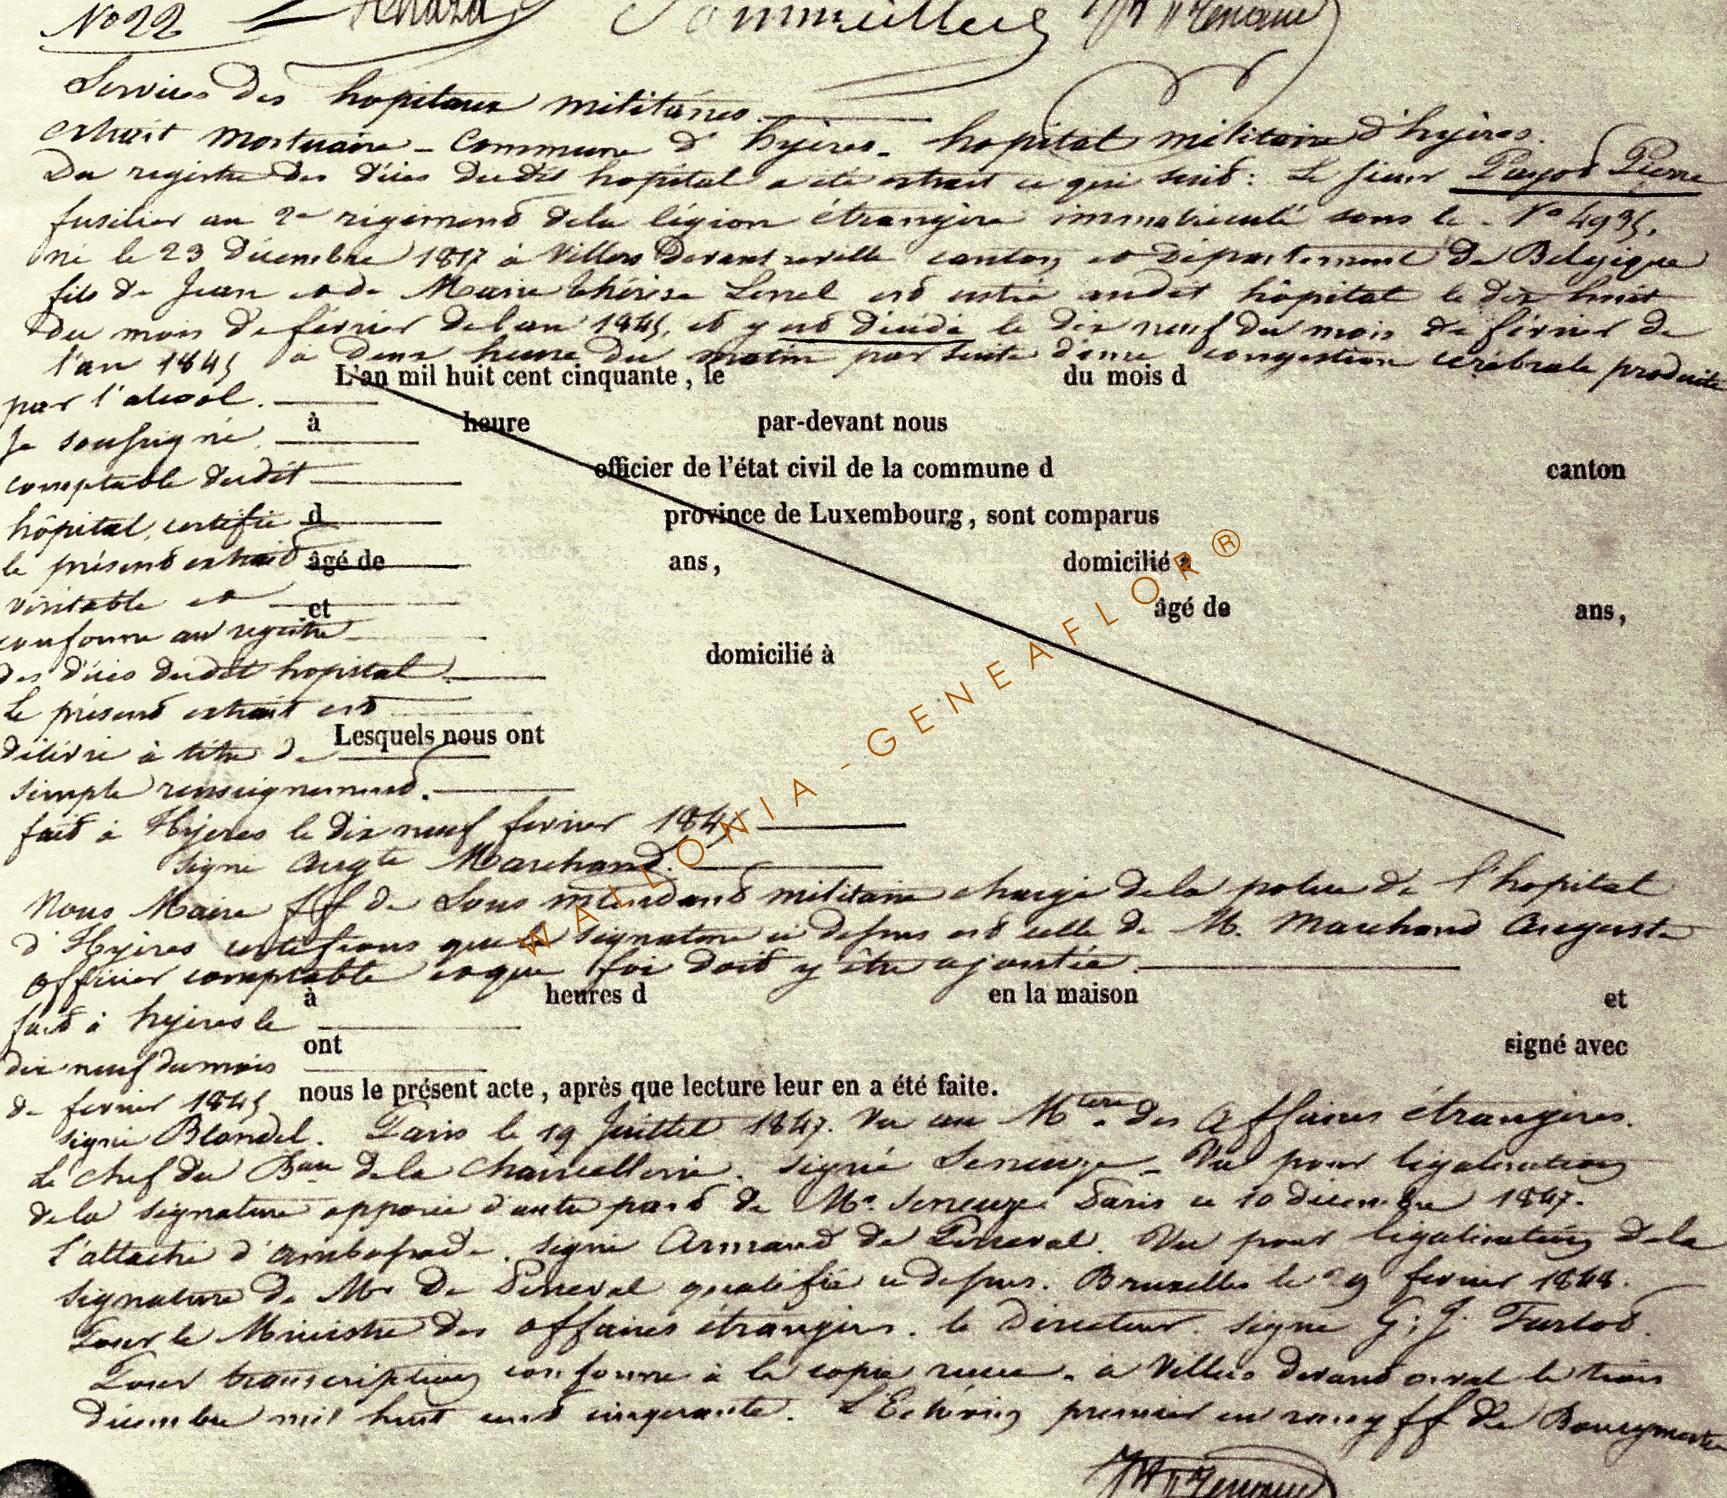 No 22
Services des hopitaux militaires.
extrait mortuaire - Commune d'hyères - hopital militaire d'hyères.
Du registre des décès dudit hopital a été extrait ce qui suit : Le sieur Payot Pierre
fusilier au 2e régiment de la légion étrangère immatriculé sous le No 4935,
né le 23 décembre 1817 à Villers Devant canton et Département de Belgique
fils de Jean et de Marie thérèse Lenel est entré audit hôpital le dix huit
du mois de février de l'an 1845, et y est décédé le dix neuf du mois de février de
l'an 1845 à deux heure du matin par suite d'une congestion cérébrale produite
L'an mil huit cent cinquante, le du mois d
par l'alcool.
à heure par-devant nous
Je soussigné
officier de l'état civil de la commune d canton
comptable dudit
province de Luxembourg, sont comparus
hôpital, certifie d
le présent extrait âgé de ans, domicilié à
véritable et et âgé de ans,
conforme au registre
domicilié à
des décès dudit hopital
Le présent extrait est
Lesquels nous ont
délivré à titre de
simple renseignement.
fait à Hyères le dix neuf fevrier 1845
signé Augte Marchand.
Nous Maire ff de Sous intendant militaire chargé de la police de l'hopital
d'Hyères certifions que la signature ci dessus est celle de M. Marchand Auguste
officier comptable et que foi doit y être ajoutée.
à heures d en la maison et
fait à hyères le
ont signé avec
dix neuf du mois
nous le présent acte, après que lecture leur en a été faite.
de fevrier 1845
signé Blondel. Paris le 19 Juillet 1847. Vu au Mtère des Affaires étrangères.
Le chef du Bau de la chancellerie. signé Seneuze - Vu pour légalisation
de la signature apposée d'autre part de Mr. Seneuze Paris ce 10 décembre 1847.
l'attaché d'ambassade. signé Armand de Perceval. Vu pour légalisation de la
signature de Mr De Perceval qualifié ci dessus. Bruxelles le 29 fevrier 1848.
Pour le Ministre des affaires étrangères. le Directeur. signé
Pour transcription conforme à la copie reçue. à Villers devant orval le trois
décembre mil huit cent cinquante. L'Echévin premier en rang ff de Bourgmestre
WALLONIA - GENEAFLOR ®